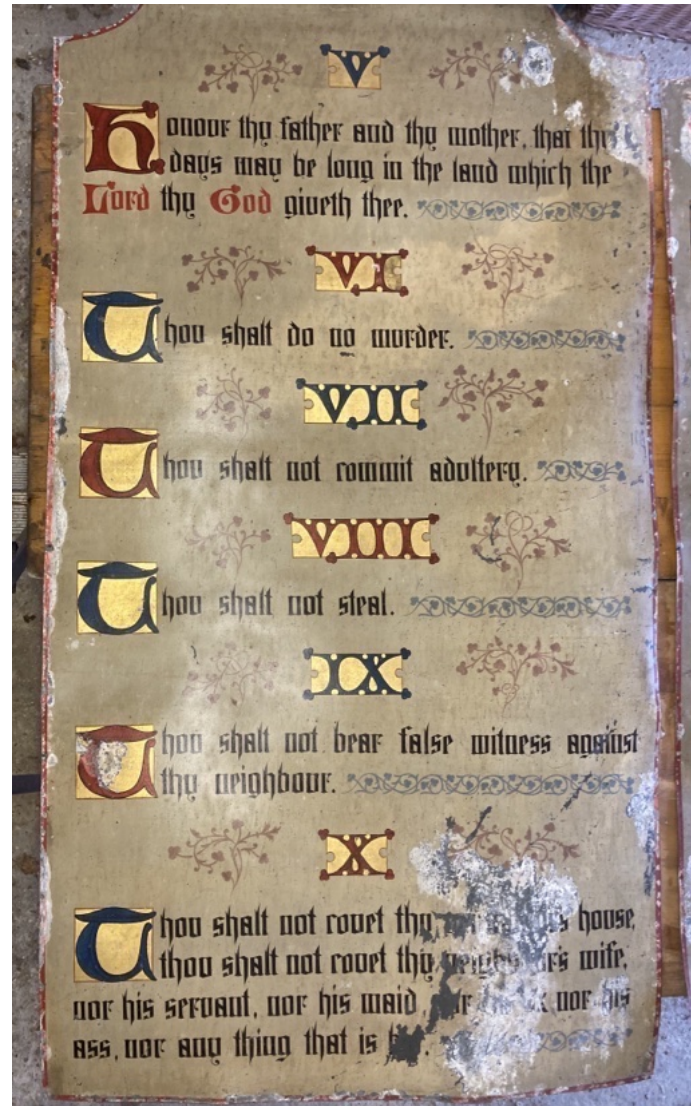 V
Honour thy father and thy mother, that thy
days may be long in the land which the
Lord thy God giveth thee.
VI
Thou shalt do no murder.
VII
Thou shalt not commit adultery.
VIII
Thou shalt not steal.
IX
Thou shalt not bear false witness against
thy neighbour.
X
Thou shalt not covet thy house,
thou shalt not covet thy neighbour's wife,
nor his servant, nor his maid, nor his
ass, nor any thing that is